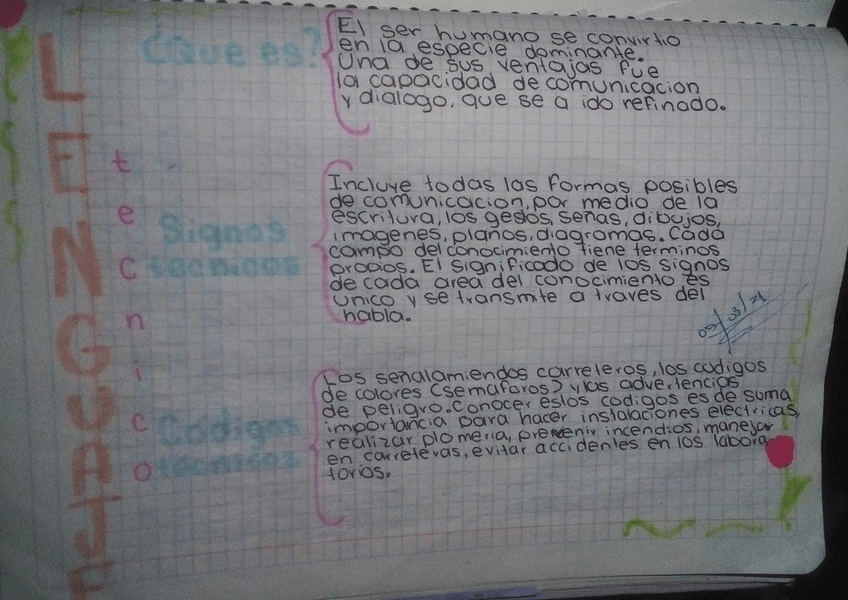 LENGUAJE
tecnico
¿Que es?
El ser humano se convirtio
en la especie dominante.
Una de sus ventajas fue
la capacidad de comunicacion
y dialogo, que se a ido refinado.
Signos
tecnicos
Incluye todas las formas posibles
de comunicacion, por medio de la
escritura, los gestos, señas, dibujos,
imagenes, planos, diagramas. Cada
campo del conocimiento tiene terminos
propios. El significado de los signos
de cada area del conocimiento es
unico y se transmite a traves del
habla.
Codigos
tecnicos
Los señalamiendos carreleros, los codigos
de colores (semaforos) y las advertencias
de peligro. Conocer estos codigos es de suma
importancia para hacer instalaciones electricas,
realizar plomeria, prevenir incendios, manejar
en carreteras, evitar accidentes en los labora-
torios.